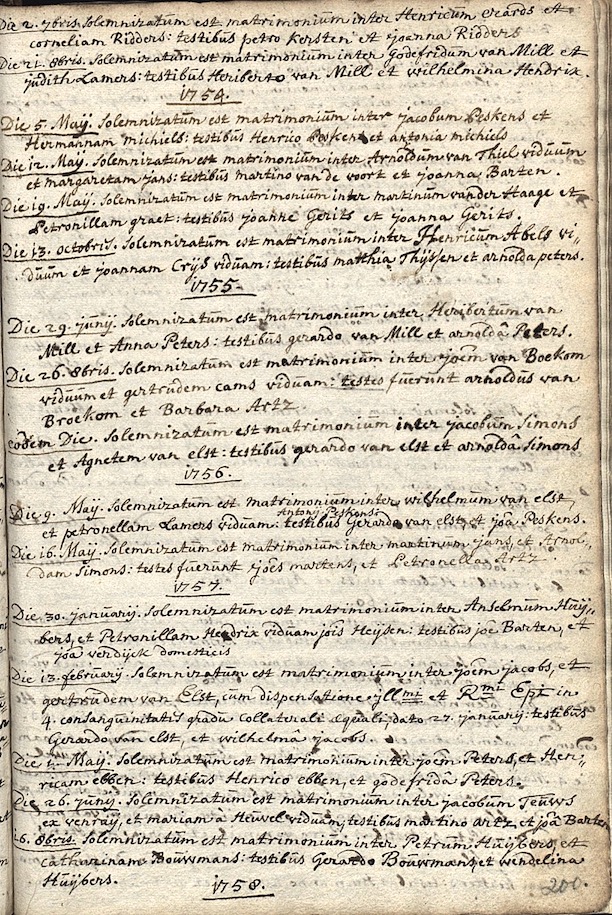 Die 2. 7bris. Solemnizatum est matrimonium inter Henricum Erards et
corneliam Ridders: testibus petro Kersten et joanna Ridders
Die 21. 8bris. Solemnizatum est matrimonium inter Godefridum van Mill et
judith Lamers: testibus Heriberto van Mill et wilhelmina Hendrix.
1754.
Die 5. Maij. Solemnizatum est matrimonium inter jacobum Peskens et
Hermannam michiels: testibus Henrico Peskens et antonia michiels
Die 12. May. Solemnizatum est matrimonium inter Arnoldum van Thiel viduum
et margaretam jans: testibus martino van de voort et joanna Barten.
Die 19. May. Solemnizatum est matrimonium inter martinum vander Haage et
Petronillam graet: testibus joanne Gerits et joanna Gerits.
Die 13. octobris. Solemnizatum est matrimonium inter Henricum Abels vi-
duum et joannam Crijs viduam: testibus matthia Thijssen et arnolda peters.
1755
Die 29. junij. Solemnizatum est matrimonium inter Heribertum van
Mill et Anna Peters: testibus gerardo van Mill et arnoldâ Peters.
Die 26. 8bris. Solemnizatum est matrimonium inter joem van Boekom
viduum et gertrudem cams viduam: testes fuerunt arnoldus van
Broekom et Barbara Artz
eodem Die. Solemnizatum est matrimonium inter jacobum Simons
et Agnetem van elst: testibus gerardo van elst et arnoldâ Simons
1756.
Die 9. Maij. Solemnizatum est matrimonium inter wilhelmum van elst,
Antony Peskens
et petronellam Lamers viduam: testibus Gerardo van elst, et joâ Peskens.
Die 16. Maij. Solemnizatum est matrimonium inter martinum jans, et Arnol-
dam Simons: testes fuerunt joês martens, et Petronella Artz
1757.
Die 30. januarij. Solemnizatum est matrimonium inter Anselmum Huij-
bers, et Petronillam Hendrix viduam jois Heijsen: testibus joe Barten, et
joâ vendijck domesticis
Die 13. februarij. Solemnizatum est matrimonium inter joêm jacobs, et
gertrudem van Elst, cum dispensatione jllmi et Rmi Epi in
4. consanguinitatis gradu collaterali aequali; dato 27. januarij: testibus
Gerardo van elst, et wilhelmâ jacobs.
Die 1. Maij. Solemnizatum est matrimonium inter joêm Peters, et Hen-
ricam ebben: testibus Henrico ebben, et godefridâ Peters.
Die 26. junij. Solemnizatum est matrimonium inter jacobum Teuws
ex venraij, et mariam a Heuvel viduam, testibus martino artz et joâ Barten
16. 8bris. Solemnizatum est matrimonium inter Petrum Huijbers, et
catharinam Bouwmans: testibus Gerardo Bouwmans, et wendelina
Huijbers.
1758.
200.